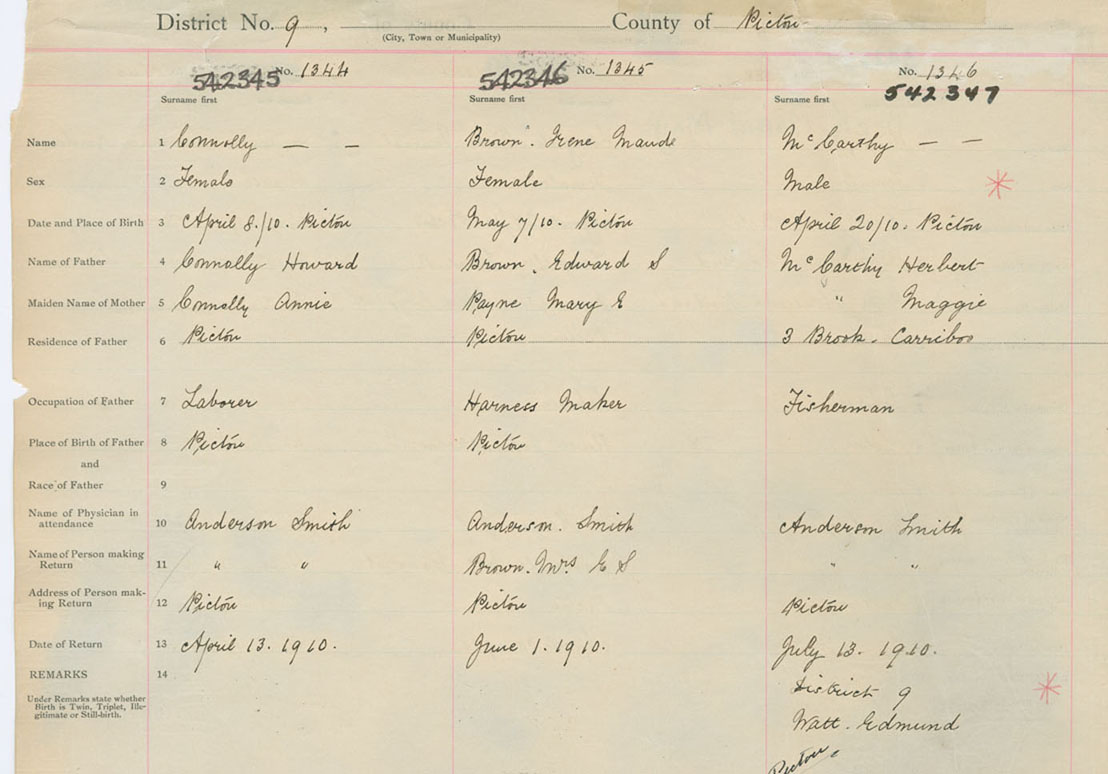 District No. 9, County of Pictou
(City, Town or Municipality)
542345 No. 1344 542346 No. 1345 No. 1346
542347
Surname first Surname first Surname first
Name 1 Connolly — — Brown. Irene Maude McCarthy — —
Sex 2 Female Female Male
Date and Place of Birth 3 April 8./10. Pictou May 7/10. Pictou April 20/10. Pictou
Name of Father 4 Connolly Howard Brown. Edward S McCarthy Herbert
Maiden Name of Mother 5 Connolly Annie Payne Mary E " Maggie
Residence of Father 6 Pictou Pictou 3 Brook. Carriboo
Occupation of Father 7 Laborer Harness Maker Fisherman
Place of Birth of Father 8 Pictou Pictou
and
Race of Father 9
Name of Physician in
attendance 10 Anderson Smith Anderson. Smith Anderson Smith
Name of Person making
Return 11 " " Brown. Mrs E S " "
Address of Person mak-
ing Return 12 Pictou Pictou Pictou
Date of Return 13 April 13. 1910. June 1. 1910. July 13. 1910.
REMARKS 14
District 9
Under Remarks state whether
Birth is Twin, Triplet, Ille-
gitimate or Still-birth.
Watt. Edmund
Pictou